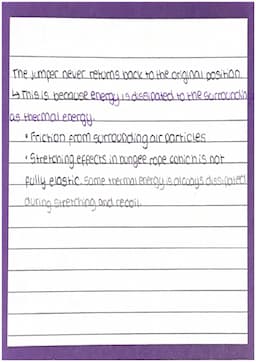 The jumper never returns back to the original position
↳ This is because energy is dissipated to the surroundin
as thermal energy.
• Friction from surrounding air particles
• Stretching effects in bungee rope which is not
fully elastic. Some thermal energy is always dissipated
during stretching and recoil.